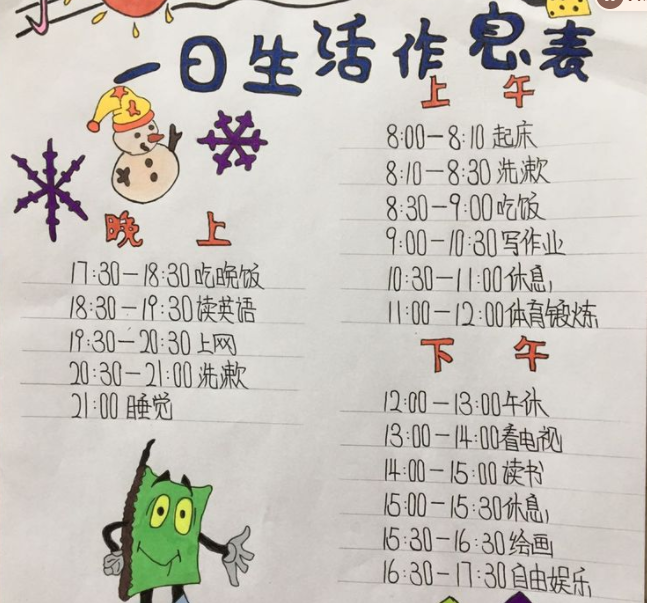 一日生活作息表
上午
8:00-8:10 起床
8:10-8:30 洗漱
8:30-9:00吃饭
9:00-10:30写作业
10:30-11:00休息
11:00-12:00体育锻炼
下午
12:00-13:00午休
13:00-14:00看电视
14:00-15:00读书
15:00-15:30休息
15:30-16:30绘画
16:30-17:30自由娱乐
晚上
17:30-18:30吃晚饭
18:30-19:30读英语
19:30-20:30上网
20:30-21:00洗漱
21:00睡觉